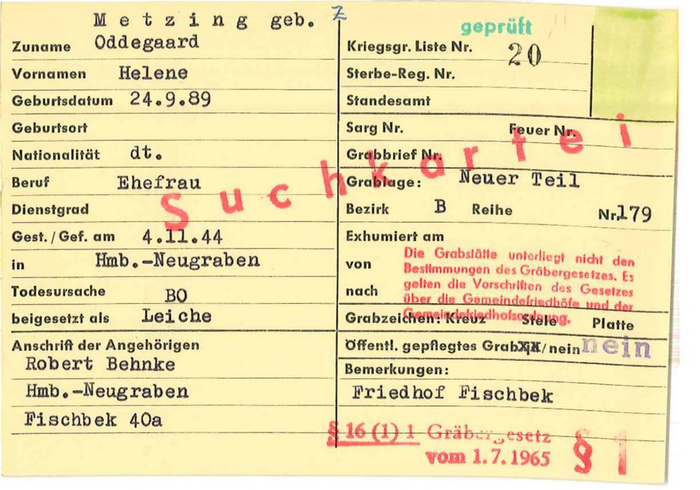 Metzing geb. Z
Zuname Oddegaard
Vornamen Helene
Geburtsdatum 24.9.89
Geburtsort
Nationalität dt.
Beruf Ehefrau
Dienstgrad
Gest./Gef. am 4.11.44
in Hmb.-Neugraben
Todesursache BO
beigesetzt als Leiche
Anschrift der Angehörigen
Robert Behnke
Hmb.-Neugraben
Fischbek 40a
geprüft
Kriegsgr. Liste Nr. 20
Sterbe-Reg. Nr.
Standesamt
Sarg Nr. Feuer Nr.
Grabbrief Nr.
Grablage: Neuer Teil
Bezirk B Reihe Nr. 179
Suchkartei
Exhumiert am
von
nach
Die Grabstätte unterliegt nicht den
Bestimmungen des Gräbergesetzes. Es
gelten die Vorschriften des Gesetzes
über die Gemeindefriedhöfe und der
Gemeindefriedhofsordnung.
Grabzeichen: Kreuz Stele Platte
Öffentl. gepflegtes Grab XX/nein nein
Bemerkungen:
Friedhof Fischbek
§ 16 (1) 1 Gräbergesetz
vom 1.7.1965
§ 1